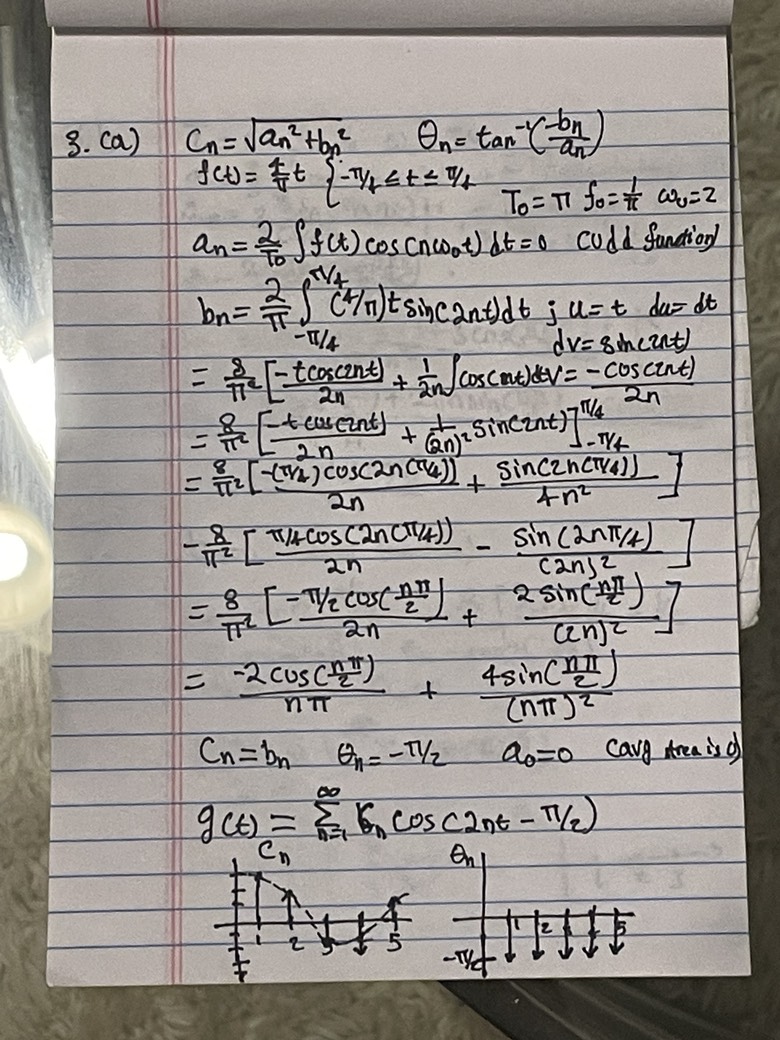 3. (a) Cn = √(an² + bn²) θn = tan⁻¹(-bn/an)
f(t) = 4/π t { -π/4 ≤ t ≤ π/4
T₀ = π f₀ = 1/π ω₀ = 2
an = 2/T₀ ∫ f(t) cos(nω₀t) dt = 0 (odd function)
bn = 2/π ∫_{-π/4}^{π/4} (4/π) t sin(2nt) dt ; u = t du = dt
dv = sin(2nt)
= 8/π² [ -t cos(2nt)/2n + 1/2n ∫ cos(2nt) dt v = -cos(2nt)/2n
= 8/π² [ -t cos(2nt)/2n + 1/(2n)² sin(2nt) ]_{-π/4}^{π/4}
= 8/π² [ -(π/4) cos(2n(π/4))/2n + sin(2n(π/4))/4n² ]
- 8/π² [ π/4 cos(2n(π/4))/2n - sin(2nπ/4)/(2n)² ]
= 8/π² [ -π/2 cos(nπ/2)/2n + 2 sin(nπ/2)/(2n)² ]
= -2 cos(nπ/2)/nπ + 4 sin(nπ/2)/(nπ)²
Cn = bn θn = -π/2 a₀ = 0 (avg area is 0)
g(t) = ∑_{n=1}^{∞} Cn cos(2nt - π/2)
Cn θn
1 2 3 5 1 2 5
-π/2